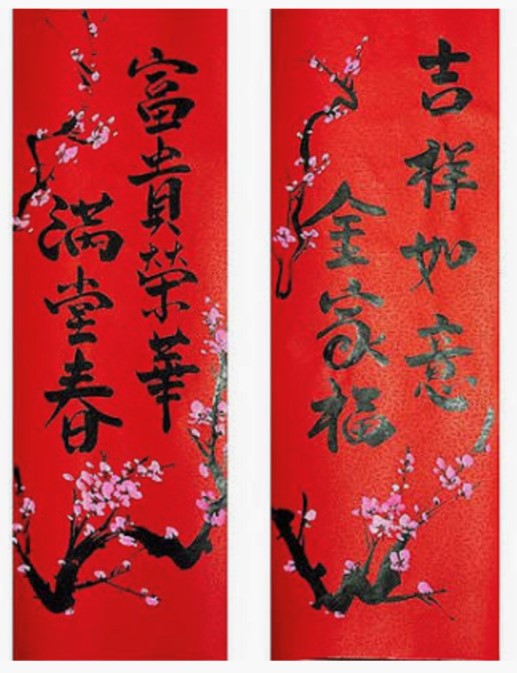 吉祥如意
全家福
富貴榮華
滿堂春